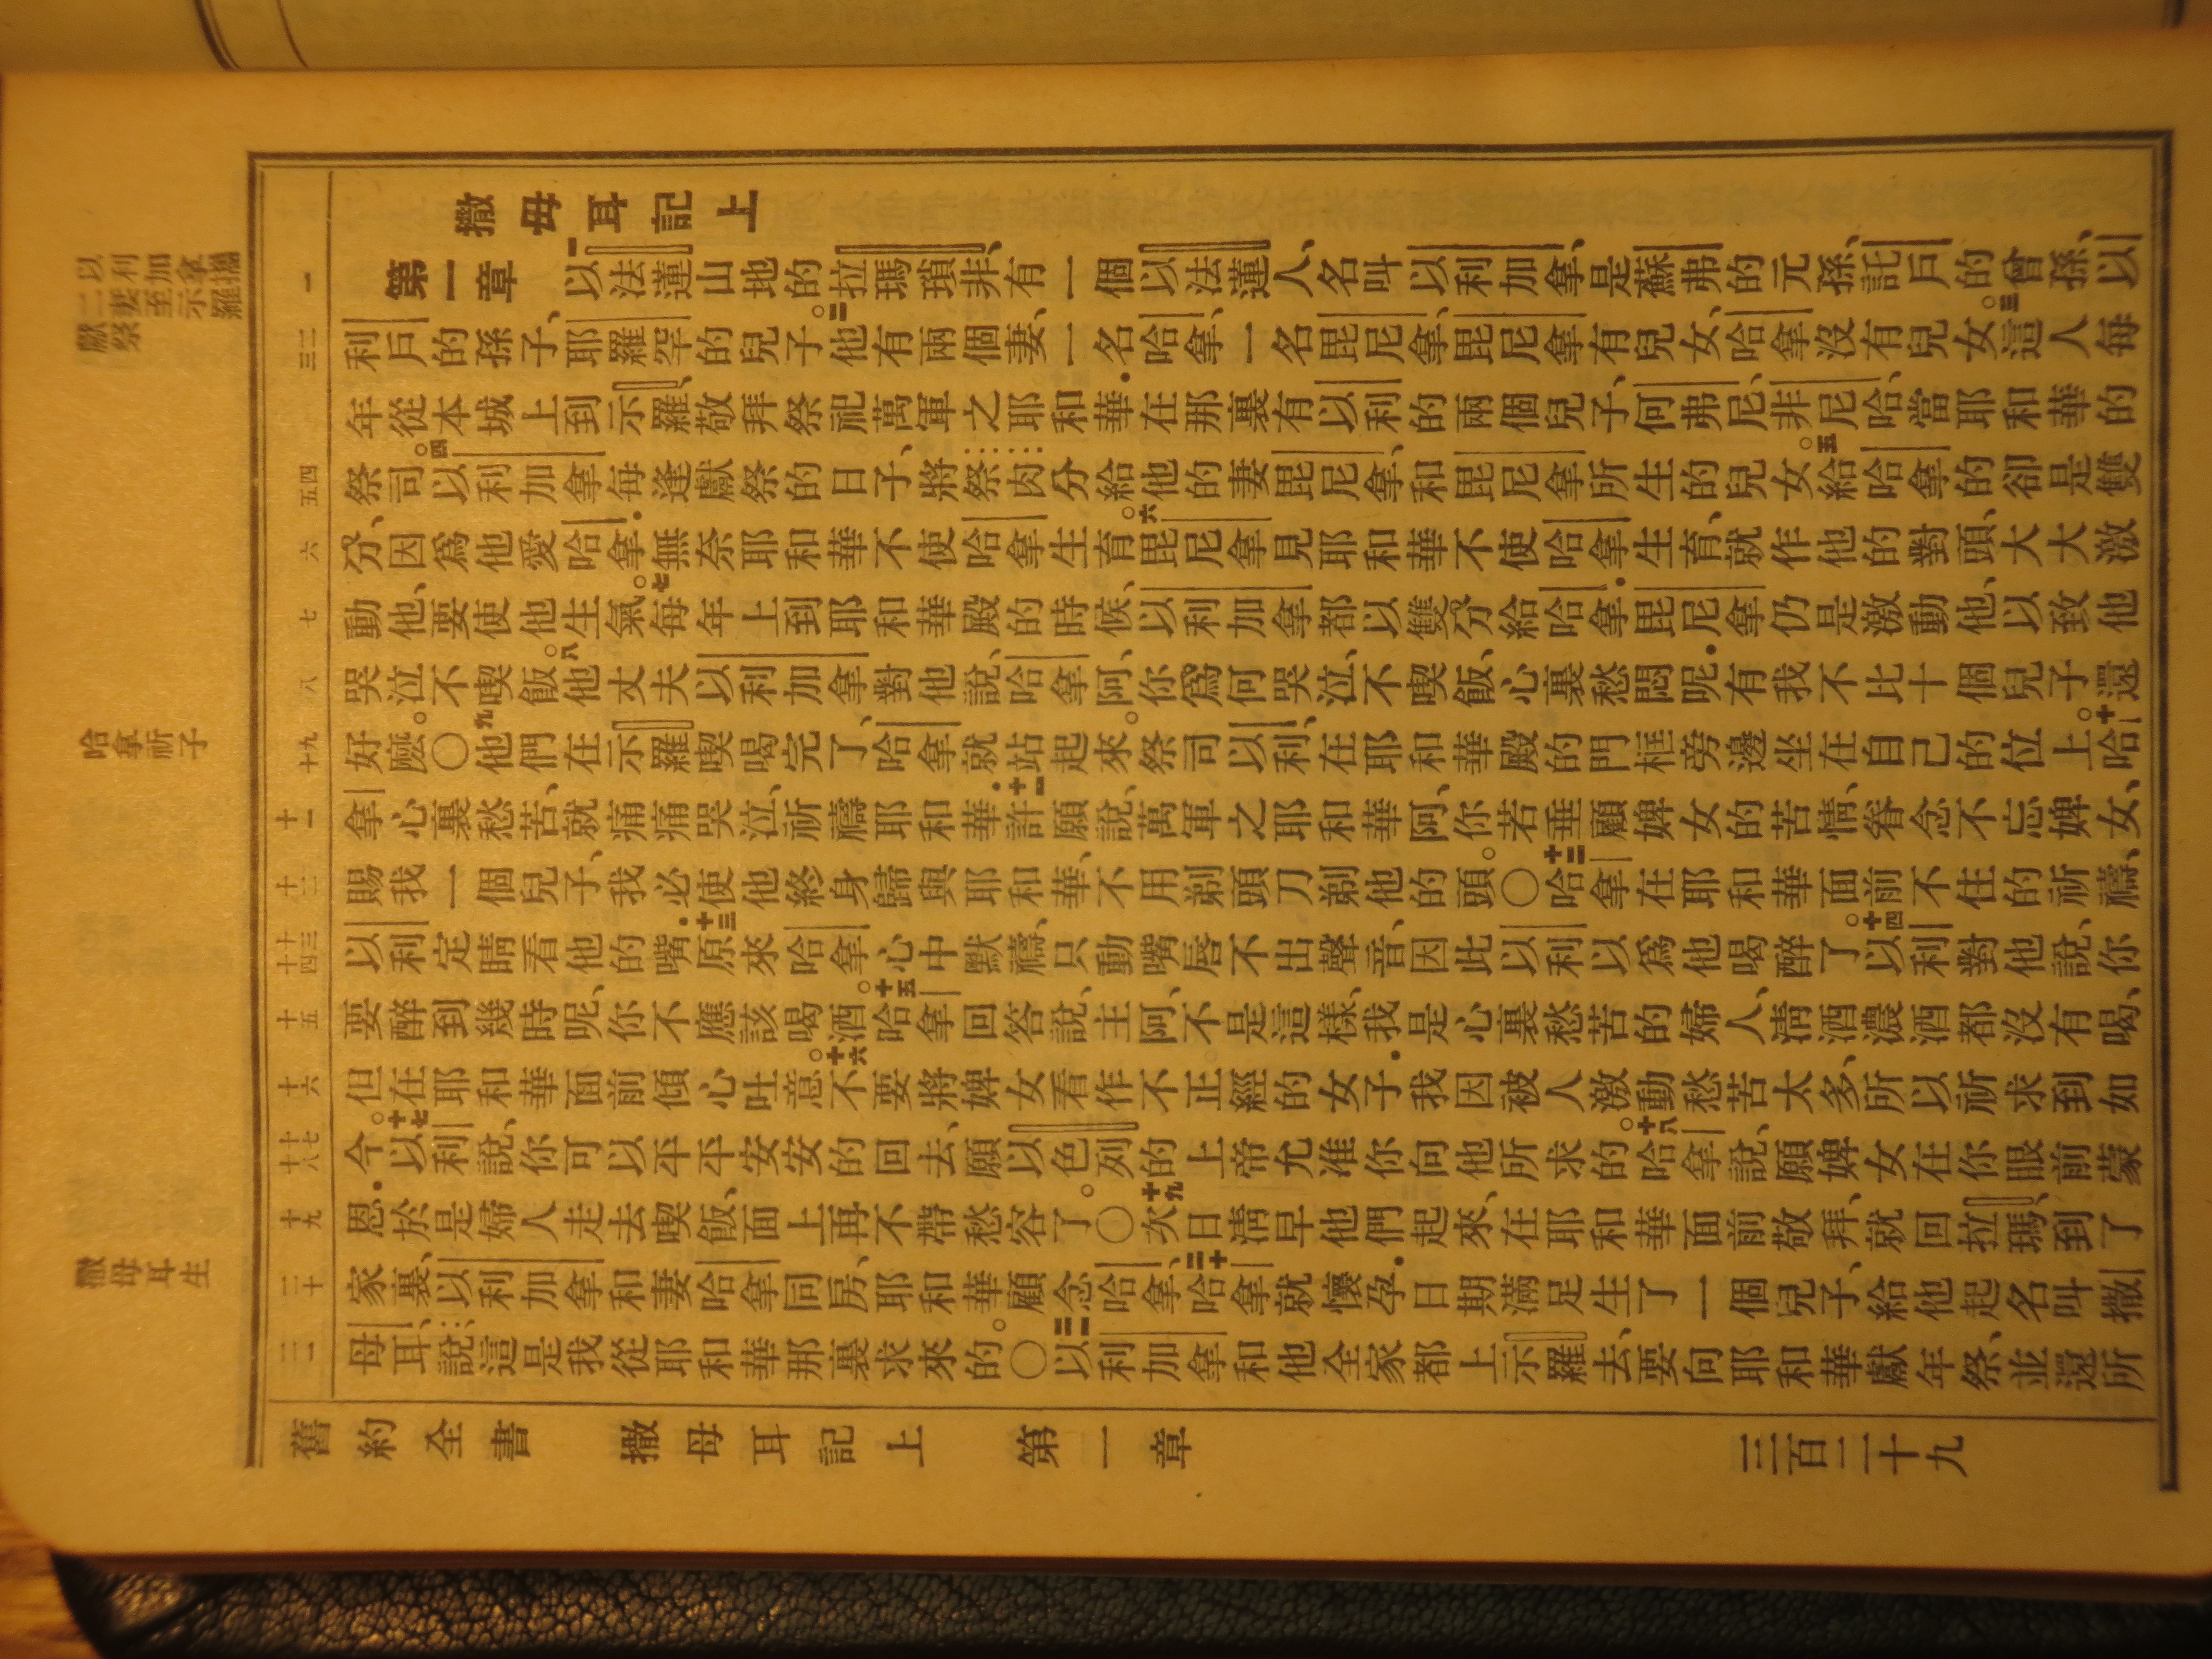 撒母耳記上
第一章 一以法蓮山地的拉瑪瑣非、有一個以法蓮人、名叫以利加拿、是蘇弗的元孫、託戶的曾孫、以
利戶的孫子、耶羅罕的兒子。二他有兩個妻、一名哈拿、一名毘尼拿、毘尼拿有兒女、哈拿沒有兒女。三這人每
年從本城上到示羅、敬拜祭祀萬軍之耶和華．在那裏有以利的兩個兒子、何弗尼、非尼哈、當耶和華的
祭司。四以利加拿每逢獻祭的日子、將祭肉分給他的妻毘尼拿、和毘尼拿所生的兒女。五給哈拿的卻是雙
分、因爲他愛哈拿．無奈耶和華不使哈拿生育。六毘尼拿見耶和華不使哈拿生育、就作他的對頭、大大激
動他、要使他生氣。七每年上到耶和華殿的時候、以利加拿都以雙分給哈拿．毘尼拿仍是激動他、以致他
哭泣不喫飯。八他丈夫以利加拿對他說、哈拿阿、你爲何哭泣、不喫飯、心裏愁悶呢．有我不比十個兒子還
好麼。〇九他們在示羅喫喝完了、哈拿就站起來。祭司以利、在耶和華殿的門框旁邊坐在自己的位上。十哈
拿心裏愁苦、就痛痛哭泣、祈禱耶和華．十一許願說、萬軍之耶和華阿、你若垂顧婢女的苦情、眷念不忘婢女、
賜我一個兒子、我必使他終身歸與耶和華、不用剃頭刀剃他的頭。〇十二哈拿在耶和華面前不住的祈禱、
以利定睛看他的嘴．十三原來哈拿心中默禱、只動嘴唇不出聲音、因此以利以爲他喝醉了。十四以利對他說、你
要醉到幾時呢、你不應該喝酒。十五哈拿回答說、主阿、不是這樣、我是心裏愁苦的婦人、清酒濃酒都沒有喝、
但在耶和華面前傾心吐意。十六不要將婢女看作不正經的女子．我因被人激動愁苦太多、所以祈求到如
今。十七以利說、你可以平平安安的回去、願以色列的上帝允准你向他所求的。十八哈拿說、願婢女在你眼前蒙
恩．於是婦人走去喫飯、面上再不帶愁容了。〇十九次日清早他們起來、在耶和華面前敬拜、就回拉瑪、到了
家裏、以利加拿和妻哈拿同房、耶和華顧念哈拿、二十哈拿就懷孕．日期滿足生了一個兒子、給他起名叫撒
母耳、說這是我從耶和華那裏求來的。〇二一以利加拿和他全家都上示羅去、要向耶和華獻年祭、並還所
舊約全書 撒母耳記上 第一章 三百二十九
一
二
三
四
五
六
七
八
九
十
十一
十二
十三
十四
十五
十六
十七
十八
十九
二十
二一
以利加拿攜
二妻至示羅
獻祭
哈拿祈子
撒母耳生